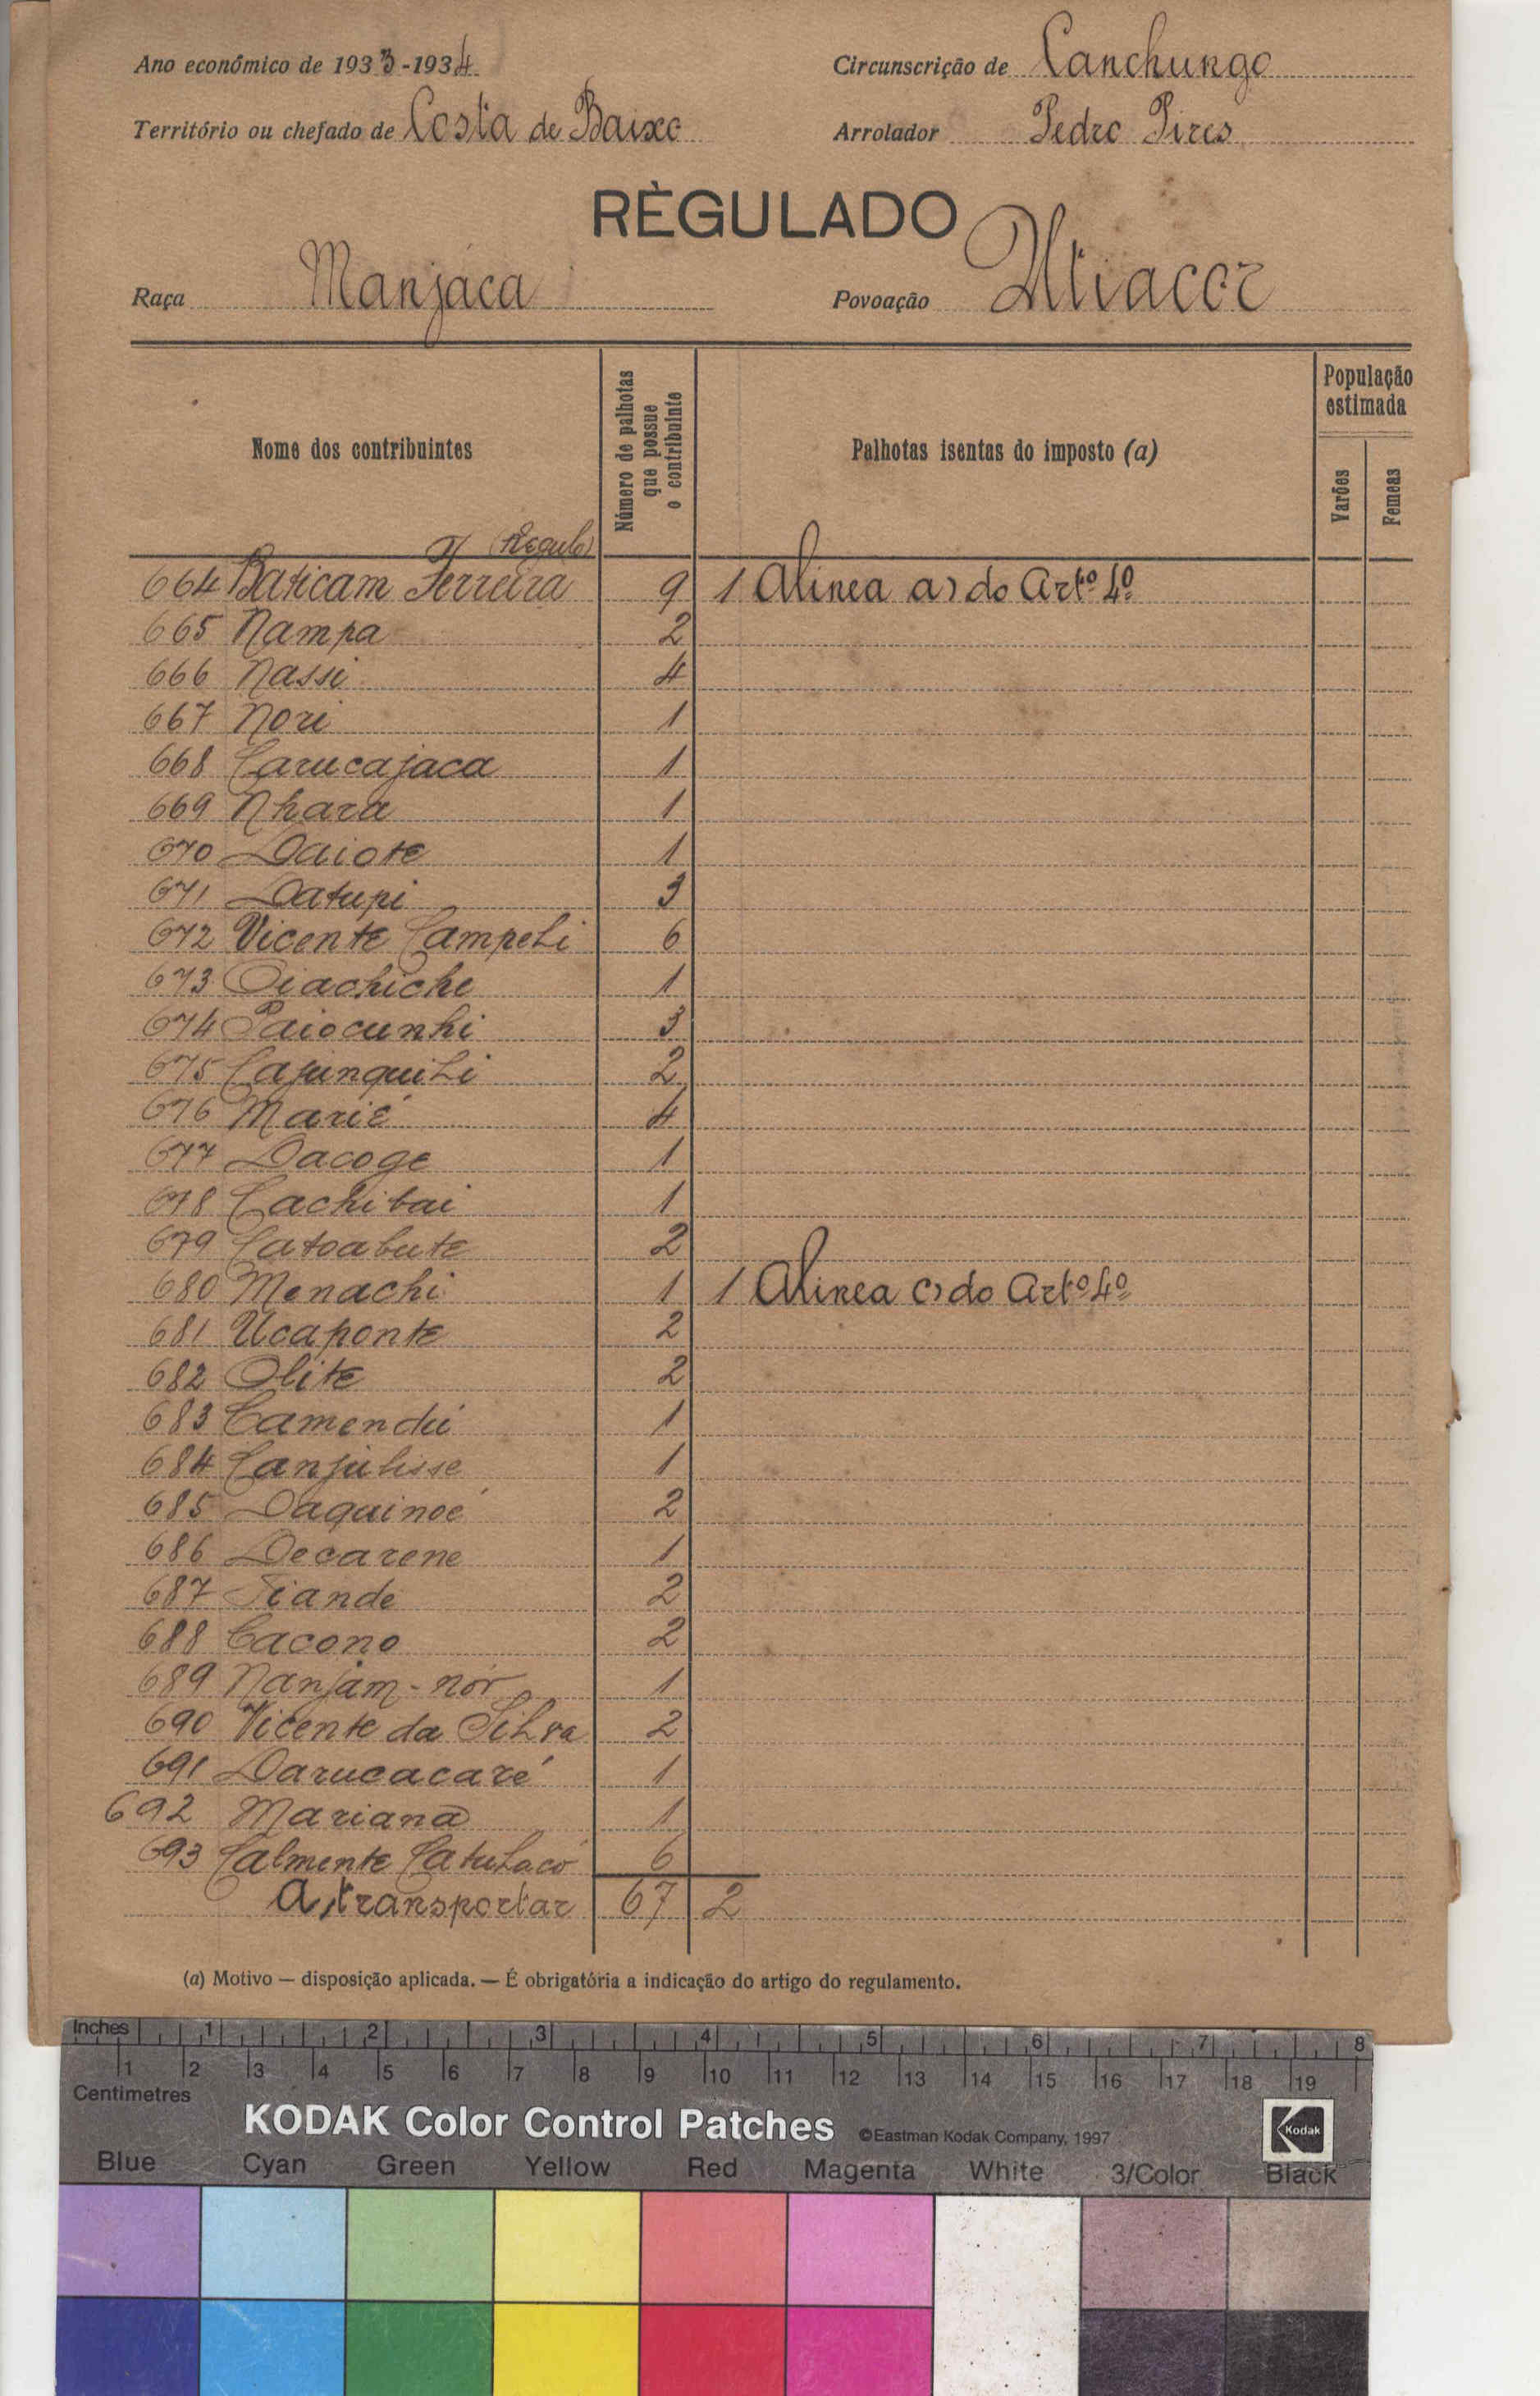 Ano económico de 1933-1934 Circunscrição de Canchungo
Território ou chefado de Costa de Baixo Arrolador Pedro Pires
RÈGULADO
Raça Manjaca Povoação Utiacor
Nome dos contribuintes
Número de palhotas que possue o contribuinte
Palhotas isentas do imposto (a)
População estimada
Varões
Femeas
(Regulo)
664 Baticam Ferreira 9 1 Alinea a) do Artº 4º
665 Nampa 2
666 Nassi 4
667 Nori 1
668 Carucajaca 1
669 Nhara 1
670 Daiote 1
671 Datupi 3
672 Vicente Campeli 6
673 Oiachiche 1
674 Paiocunhi 3
675 Cajunquili 2
676 Marié 4
677 Dacoge 1
678 Cachibai 1
679 Catoabute 2
680 Menachi 1 1 Alinea c) do Artº 4º
681 Ucaponte 2
682 Olite 2
683 Camendú 1
684 Canjulisse 1
685 Daquinoé 2
686 Decarene 1
687 Tiande 2
688 Cacono 2
689 Nanjam-nór 1
690 Vicente da Silva 2
691 Darucacaré 1
692 Mariana 1
693 Calmente Catulacó 6
A transportar 67 2
(a) Motivo — disposição aplicada. — É obrigatória a indicação do artigo do regulamento.
Inches 1 2 3 4 5 6 7 8
1 2 3 4 5 6 7 8 9 10 11 12 13 14 15 16 17 18 19
Centimetres
KODAK Color Control Patches ©Eastman Kodak Company, 1997 Kodak
Blue Cyan Green Yellow Red Magenta White 3/Color Black